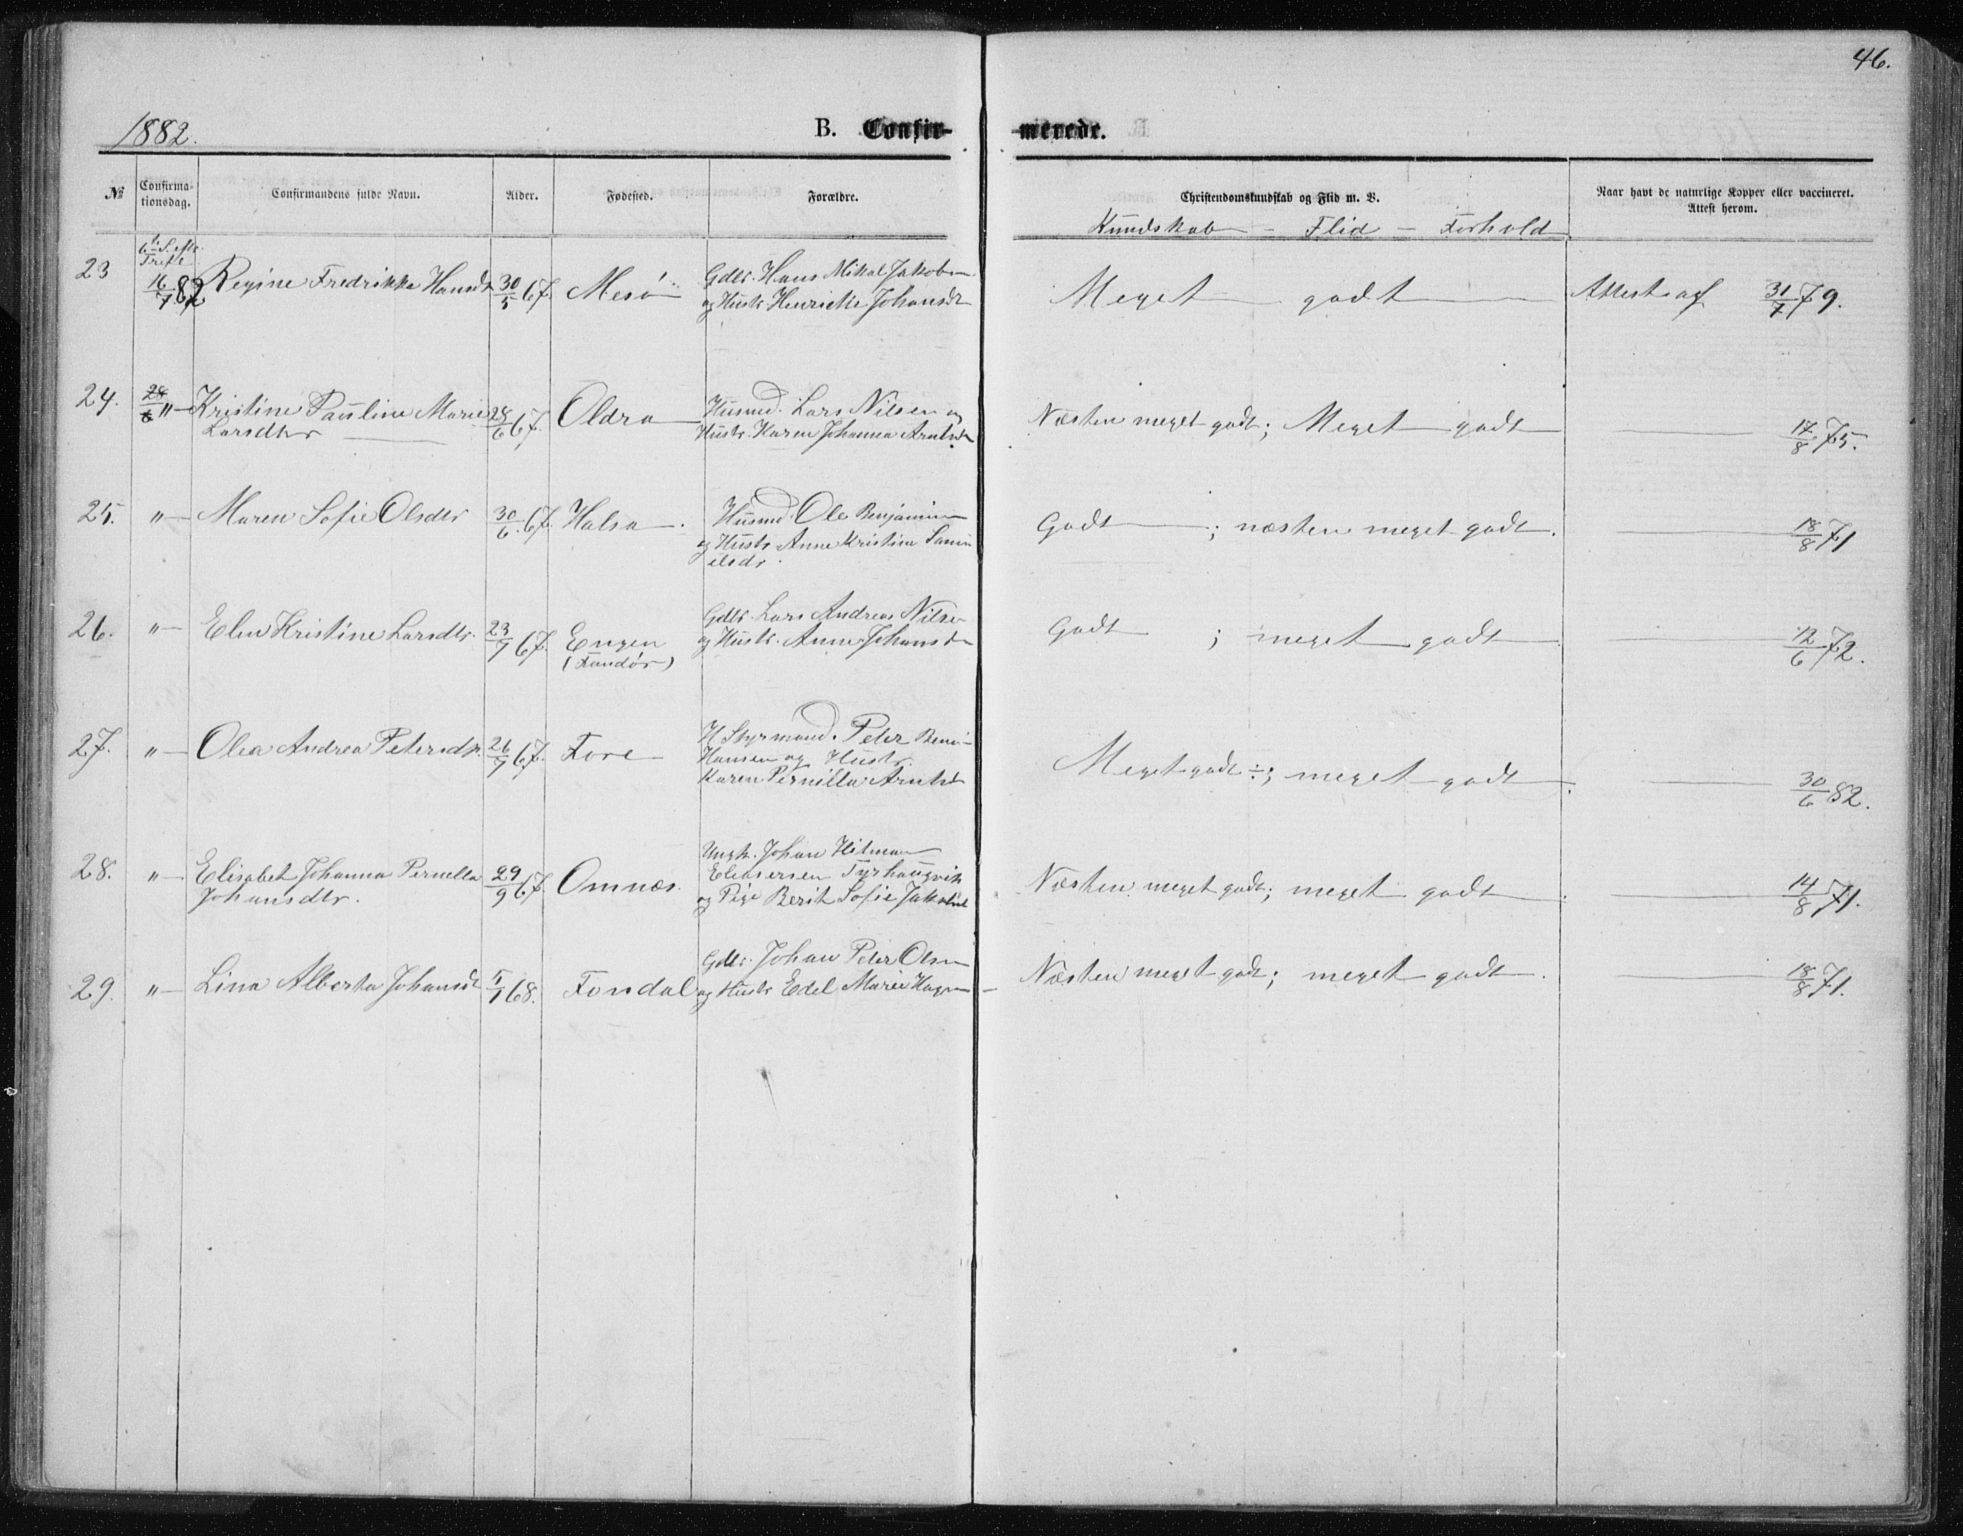 46.
1882.
B. Confir-
merede.
№
Confirma-
tionsdag.
Confirmandens fulde Navn.
Alder.
Fødested.
Forældre.
Christendomskundskab og Flid m. V.
Naar havt de naturlige Kopper eller vaccineret.
Attest herom.
Kundskab - Flid - Forhold
23 16/7 82 Regine Fredrikke Hansdt 30/5 67. Mesö Gdbr. Hans Mikal Jakobsen
og Hustr. Henrikke Johansdt
Meget godt Attest af 31/7 79.
24. 28/6 " Kristine Pauline Marie 28/6 67. Oldra Husmd. Lars Nilsen og
Larsdtr Hustr. Karen Johanna Arntsdt
Næsten meget godt; Meget godt 17/8 75.
25. " Maren Sofie Olsdtr 30/6 67. Halsa Husmd Ole Benjaminsen
og Hustr Anne Kristine Samu
elsdr.
Godt ; næsten meget godt. 18/8 71
26. " Elen Kristine Larsdtr. 23/7 67. Engen Gdbr. Lars Andreas Nilsen
(Fundör) og Hustr. Anne Johansdt
Godt ; meget godt 12/6 72.
27. " Olea Andrea Petersdtr. 26/7 67. Fore H Styrmand. Peter
Hansen og Hustr.
Karen Pernilla Arntsdt
Meget godt ÷; meget godt 30/6 82.
28. " Elisabet Johanna Pernella 29/9 67. Omnæs. Ungk. Johan Hitman
Johansdtr. Eliasersen Tyrhaugvik
og Pige Berit Sofie Jakobsd
Næsten meget godt; meget godt 14/8 71.
29. " Lina Alberta Johansdt 5/1 68. Fondal Gdbr. Johan Peter Olsen
og Hustr Edel Marie
Næsten meget godt; meget godt. 18/8 71.